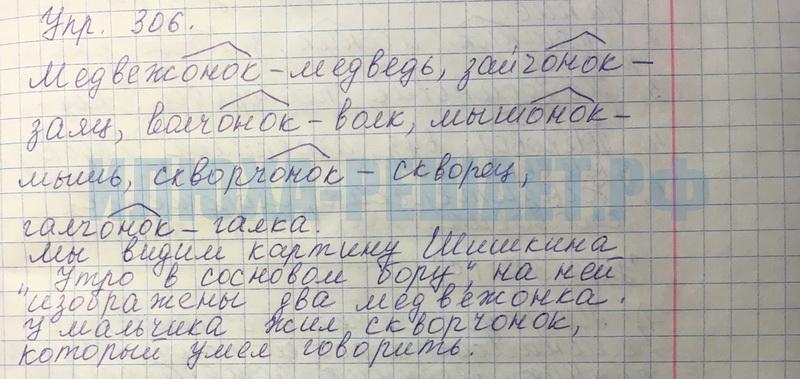 Упр. 306.
Медвежонок – медведь, зайчонок –
заяц, волчонок – волк, мышонок –
мышь, скворчонок – скворец,
ИЛЮХА-РЕШАЕТ.РФ
галчонок – галка.
Мы видим картину Шишкина
"Утро в сосновом бору", на ней
изображены два медвежонка.
У мальчика жил скворчонок,
который умел говорить.